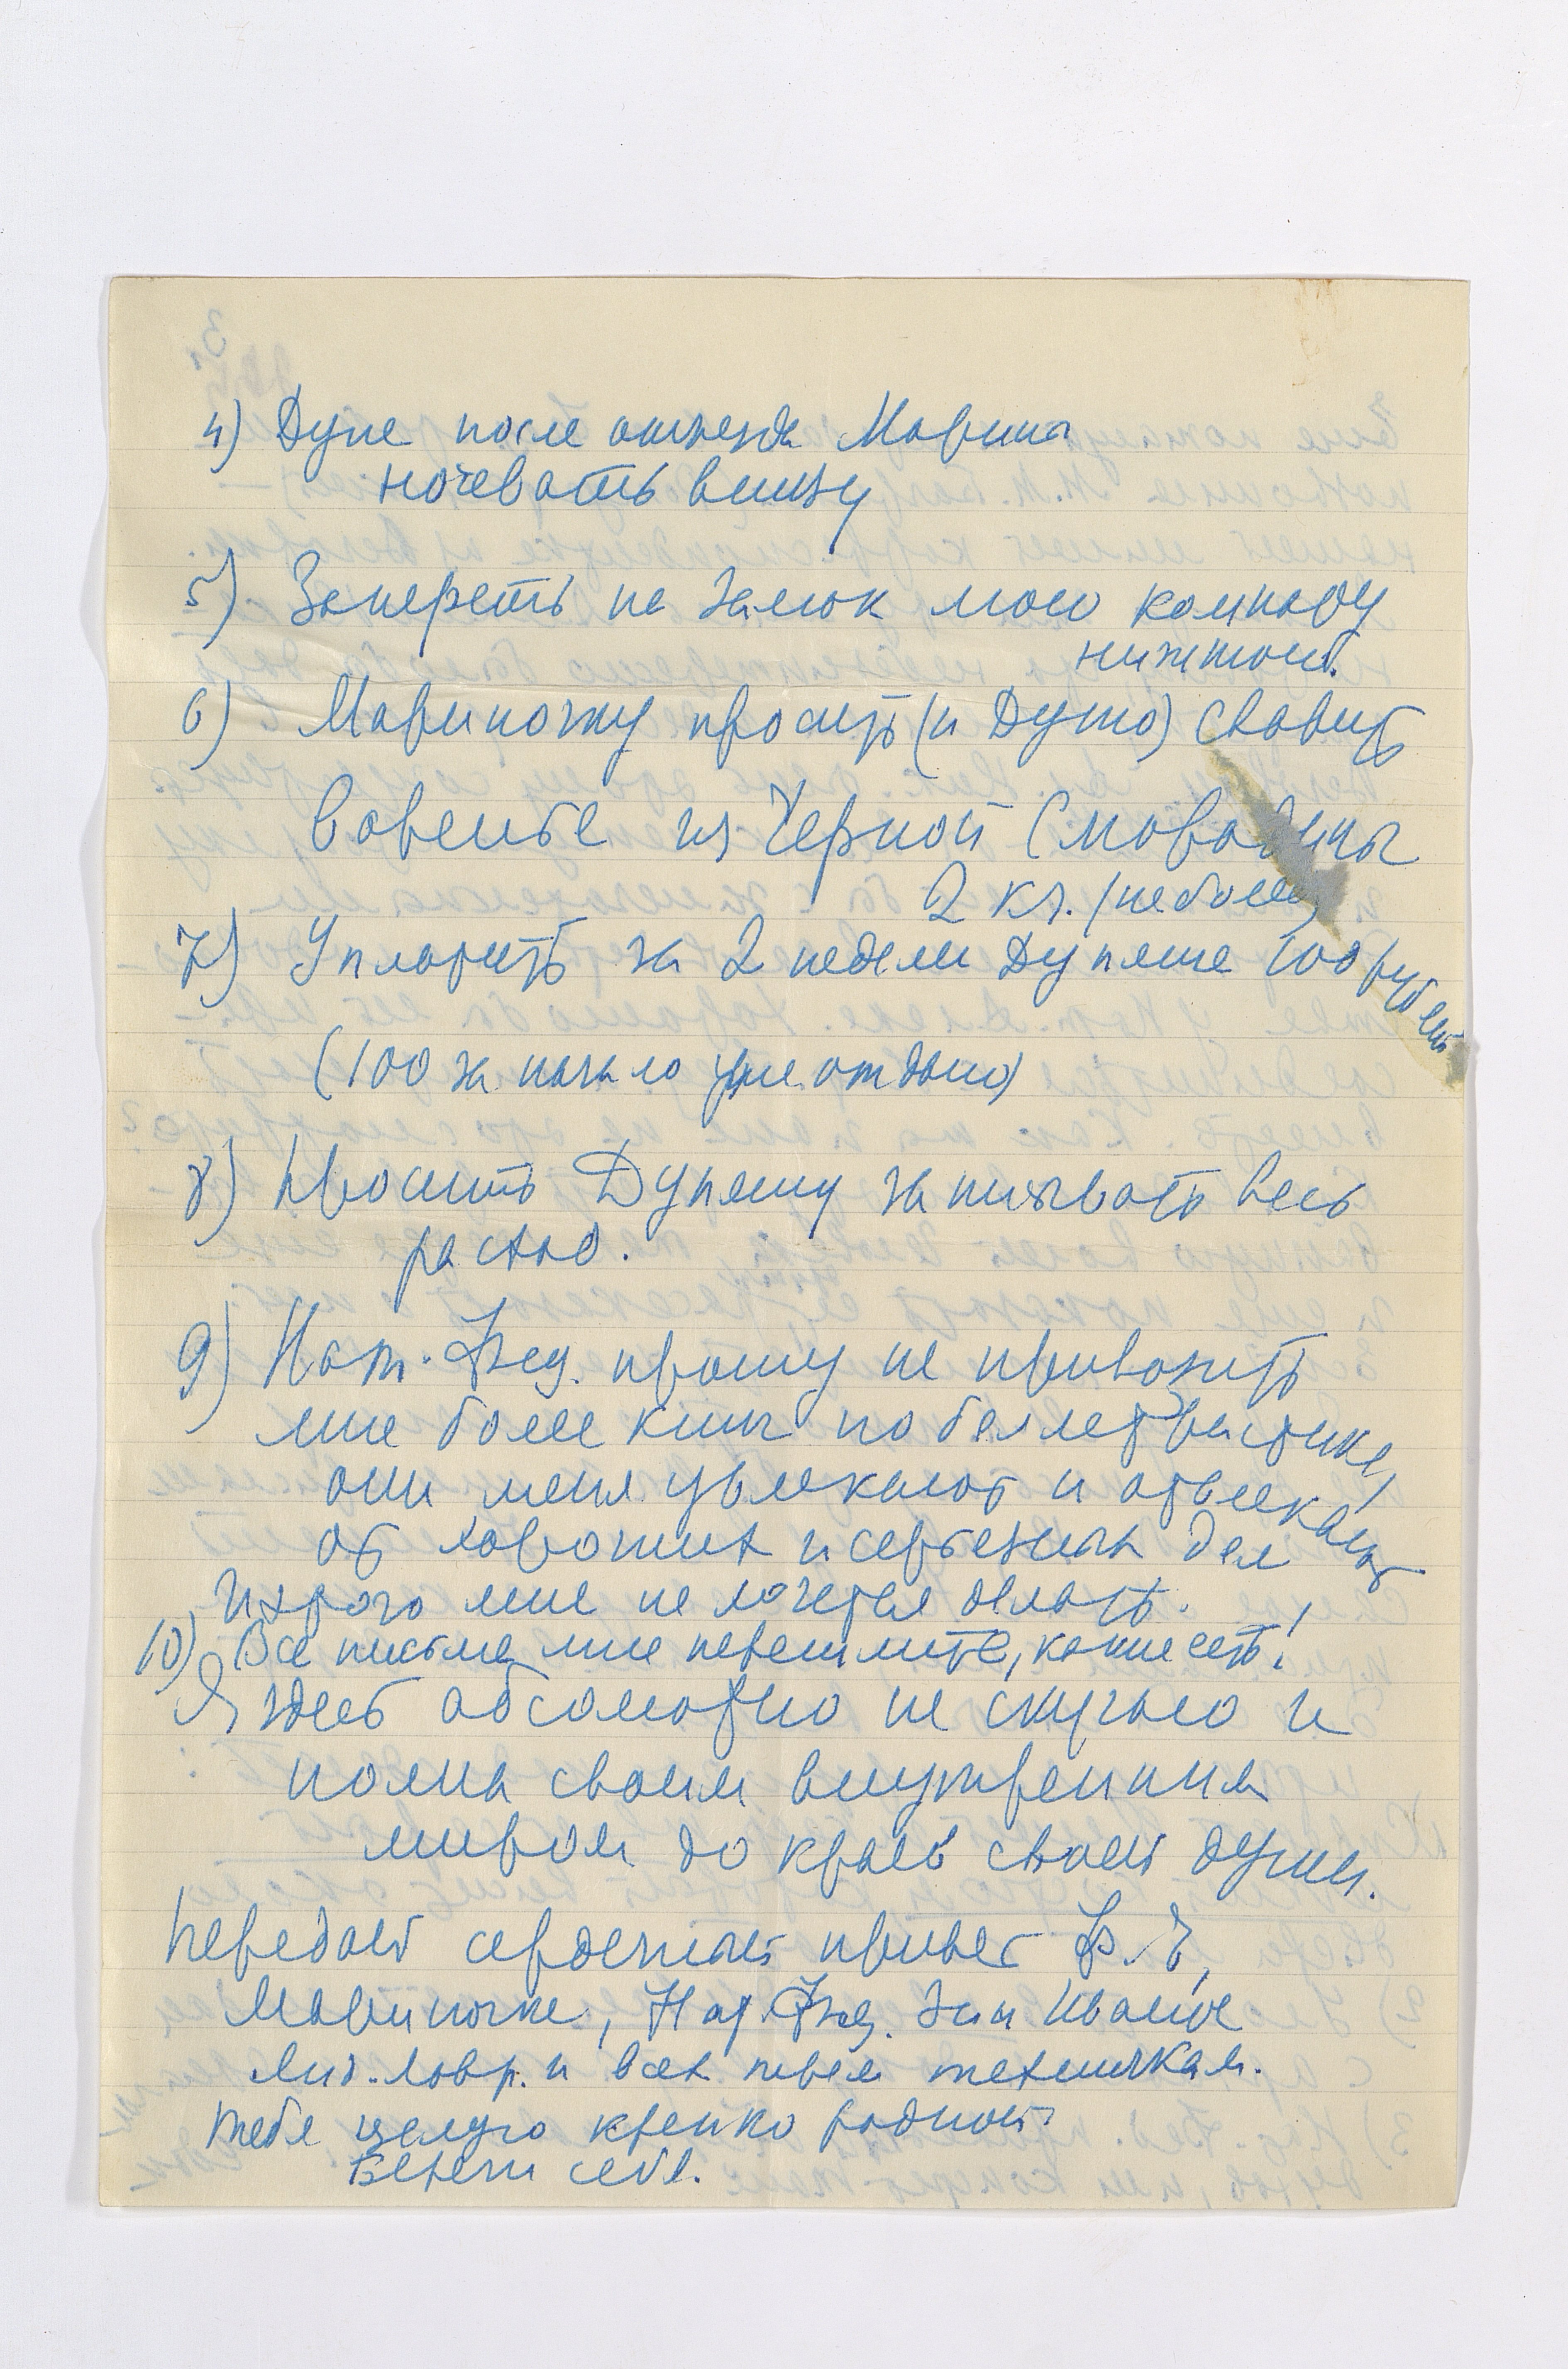 4) Дуне после отъезда Марины
ночевать внизу
5) Запереть на замок мою комнату
нижнюю.
6) Мариночку просить (и Дуню) сварить
варенье из Черной Смородины
2 кг. (не более)
7) Уплатить за 2 недели Дуняше 100 рублей
(100 за начало уже отдано)
8) Просить Дуняшу записывать весь
расход.
9) Нат. Фед. прошу не привозить
мне более книг по беллетристике,
они меня увлекают и отвлекают
от хороших и серьезных дел
и этого мне не хочется делать.
10) Все письма мне перешлите, какие есть!
Я здесь абсолютно не скучаю и
полна своим внутренним
миром до краев своей души.
Передай сердечный привет
Мариночке, Нат. Фед. Зин Иванне
Лид. Лавр. и всем моим техничкам.
Тебя целую крепко родной
Береги себя.